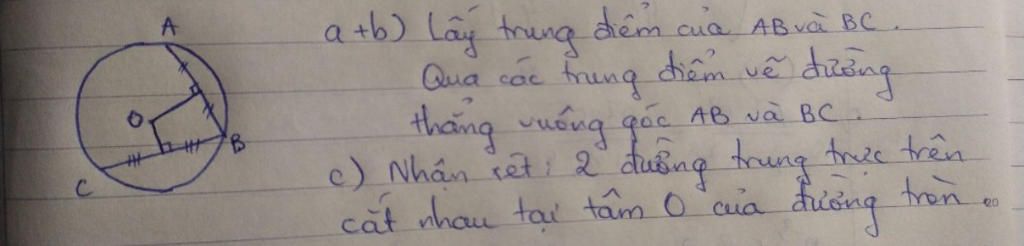 A
O
B
C
a+b) Lấy trung điểm của AB và BC.
Qua các trung điểm vẽ đường
thẳng vuông góc AB và BC.
c) Nhận xét: 2 đường trung trực trên
cắt nhau tại tâm O của đường tròn.